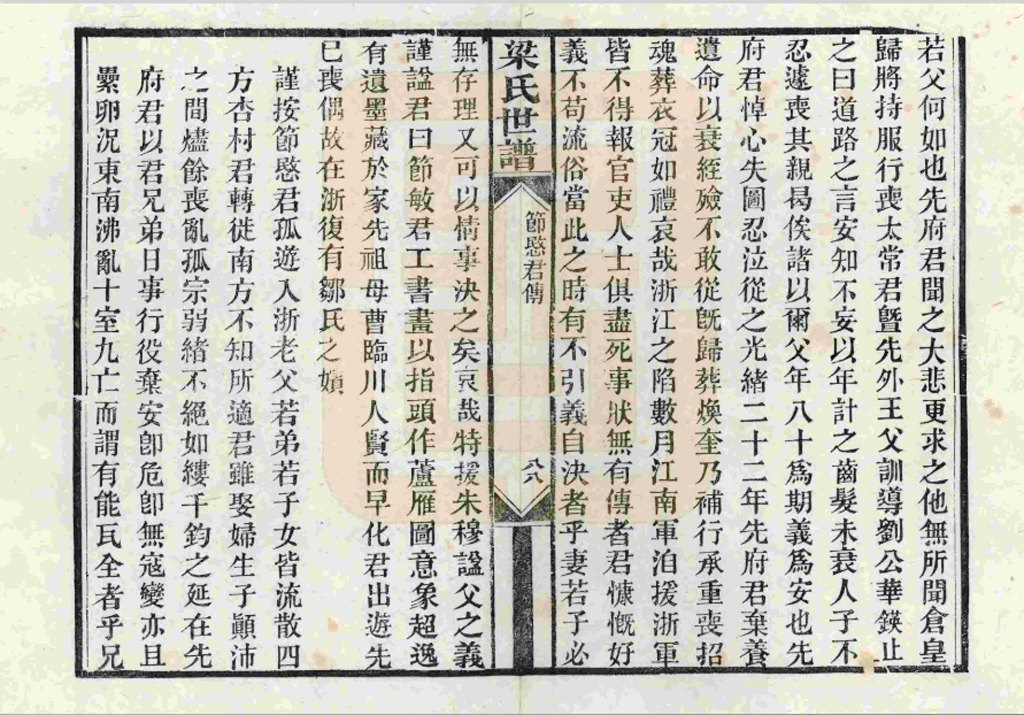 若父何如也先府君聞之大悲更求之他無所聞倉皇
歸將持服行喪太常君暨先外王父訓導劉公華鍈止
之曰道路之言安知不妄以年計之齒髮未衰人子不
忍遽喪其親曷俟諸以爾父年八十爲期義爲安也先
府君悼心失圖忍泣從之光緒二十二年先府君棄養
遺命以衰絰殮不敢從旣歸葬煥奎乃補行承重喪招
魂葬衣冠如禮哀哉浙江之陷數月江南軍洎援浙軍
皆不得報官吏人士俱盡死事狀無有傳者君慷慨好
義不苟流俗當此之時有不引義自決者乎妻若子必
梁氏世譜
節愍君傳
八八
無存理又可以情事決之矣哀哉特援朱穆諡父之義
謹諡君曰節敏君工書畫以指頭作蘆雁圖意象超逸
有遺墨藏於家先祖母曹臨川人賢而早化君出遊先
已喪偶故在浙復有鄒氏之嬪
謹按節愍君孤遊入浙老父若弟若子女皆流散四
方杏村君轉徙南方不知所適君雖娶婦生子顚沛
之間燼餘喪亂孤宗弱緒不絕如縷千鈞之延在先
府君以君兄弟日事行役棄安卽危卽無寇變亦且
纍卵況東南沸亂十室九亡而謂有能瓦全者乎兄